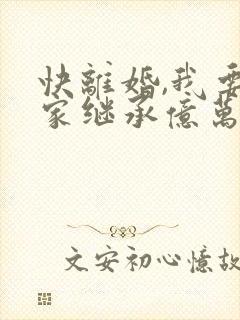 快離婚,我要
家继承億萬
文安初心憶故